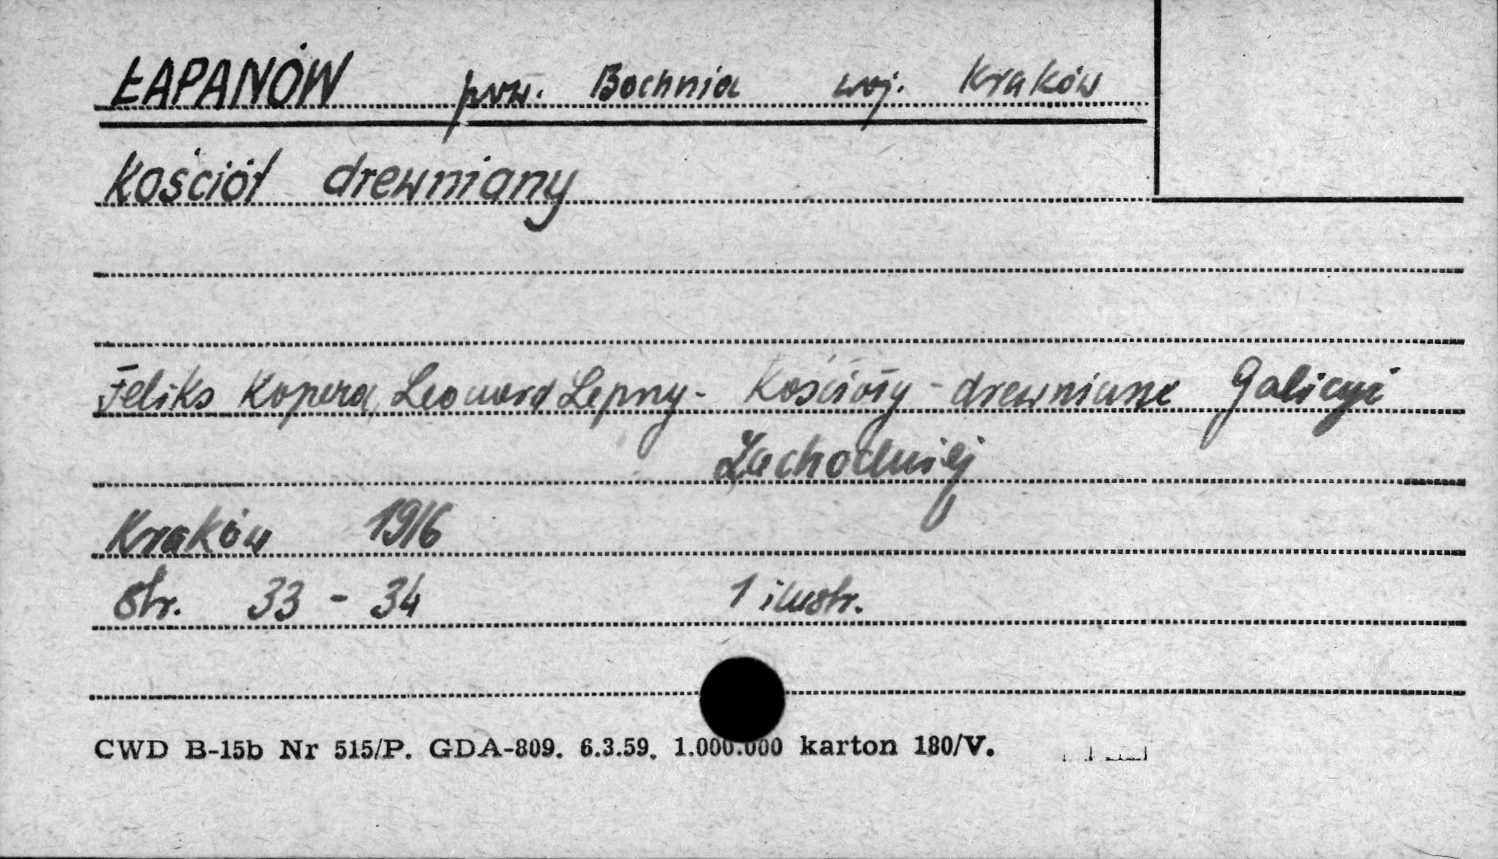 ŁAPANÓW pow. Bochnia woj. Kraków
Kościół drewniany
Feliks Kopera, Leonard Lepszy - Kościoły - drewniane Galicyi
Zachodniej
Kraków 1916
str. 33 - 34 1 ilustr.
CWD B-15b Nr 515/P. GDA-809. 6.3.59. 1.000.000 karton 180/V.